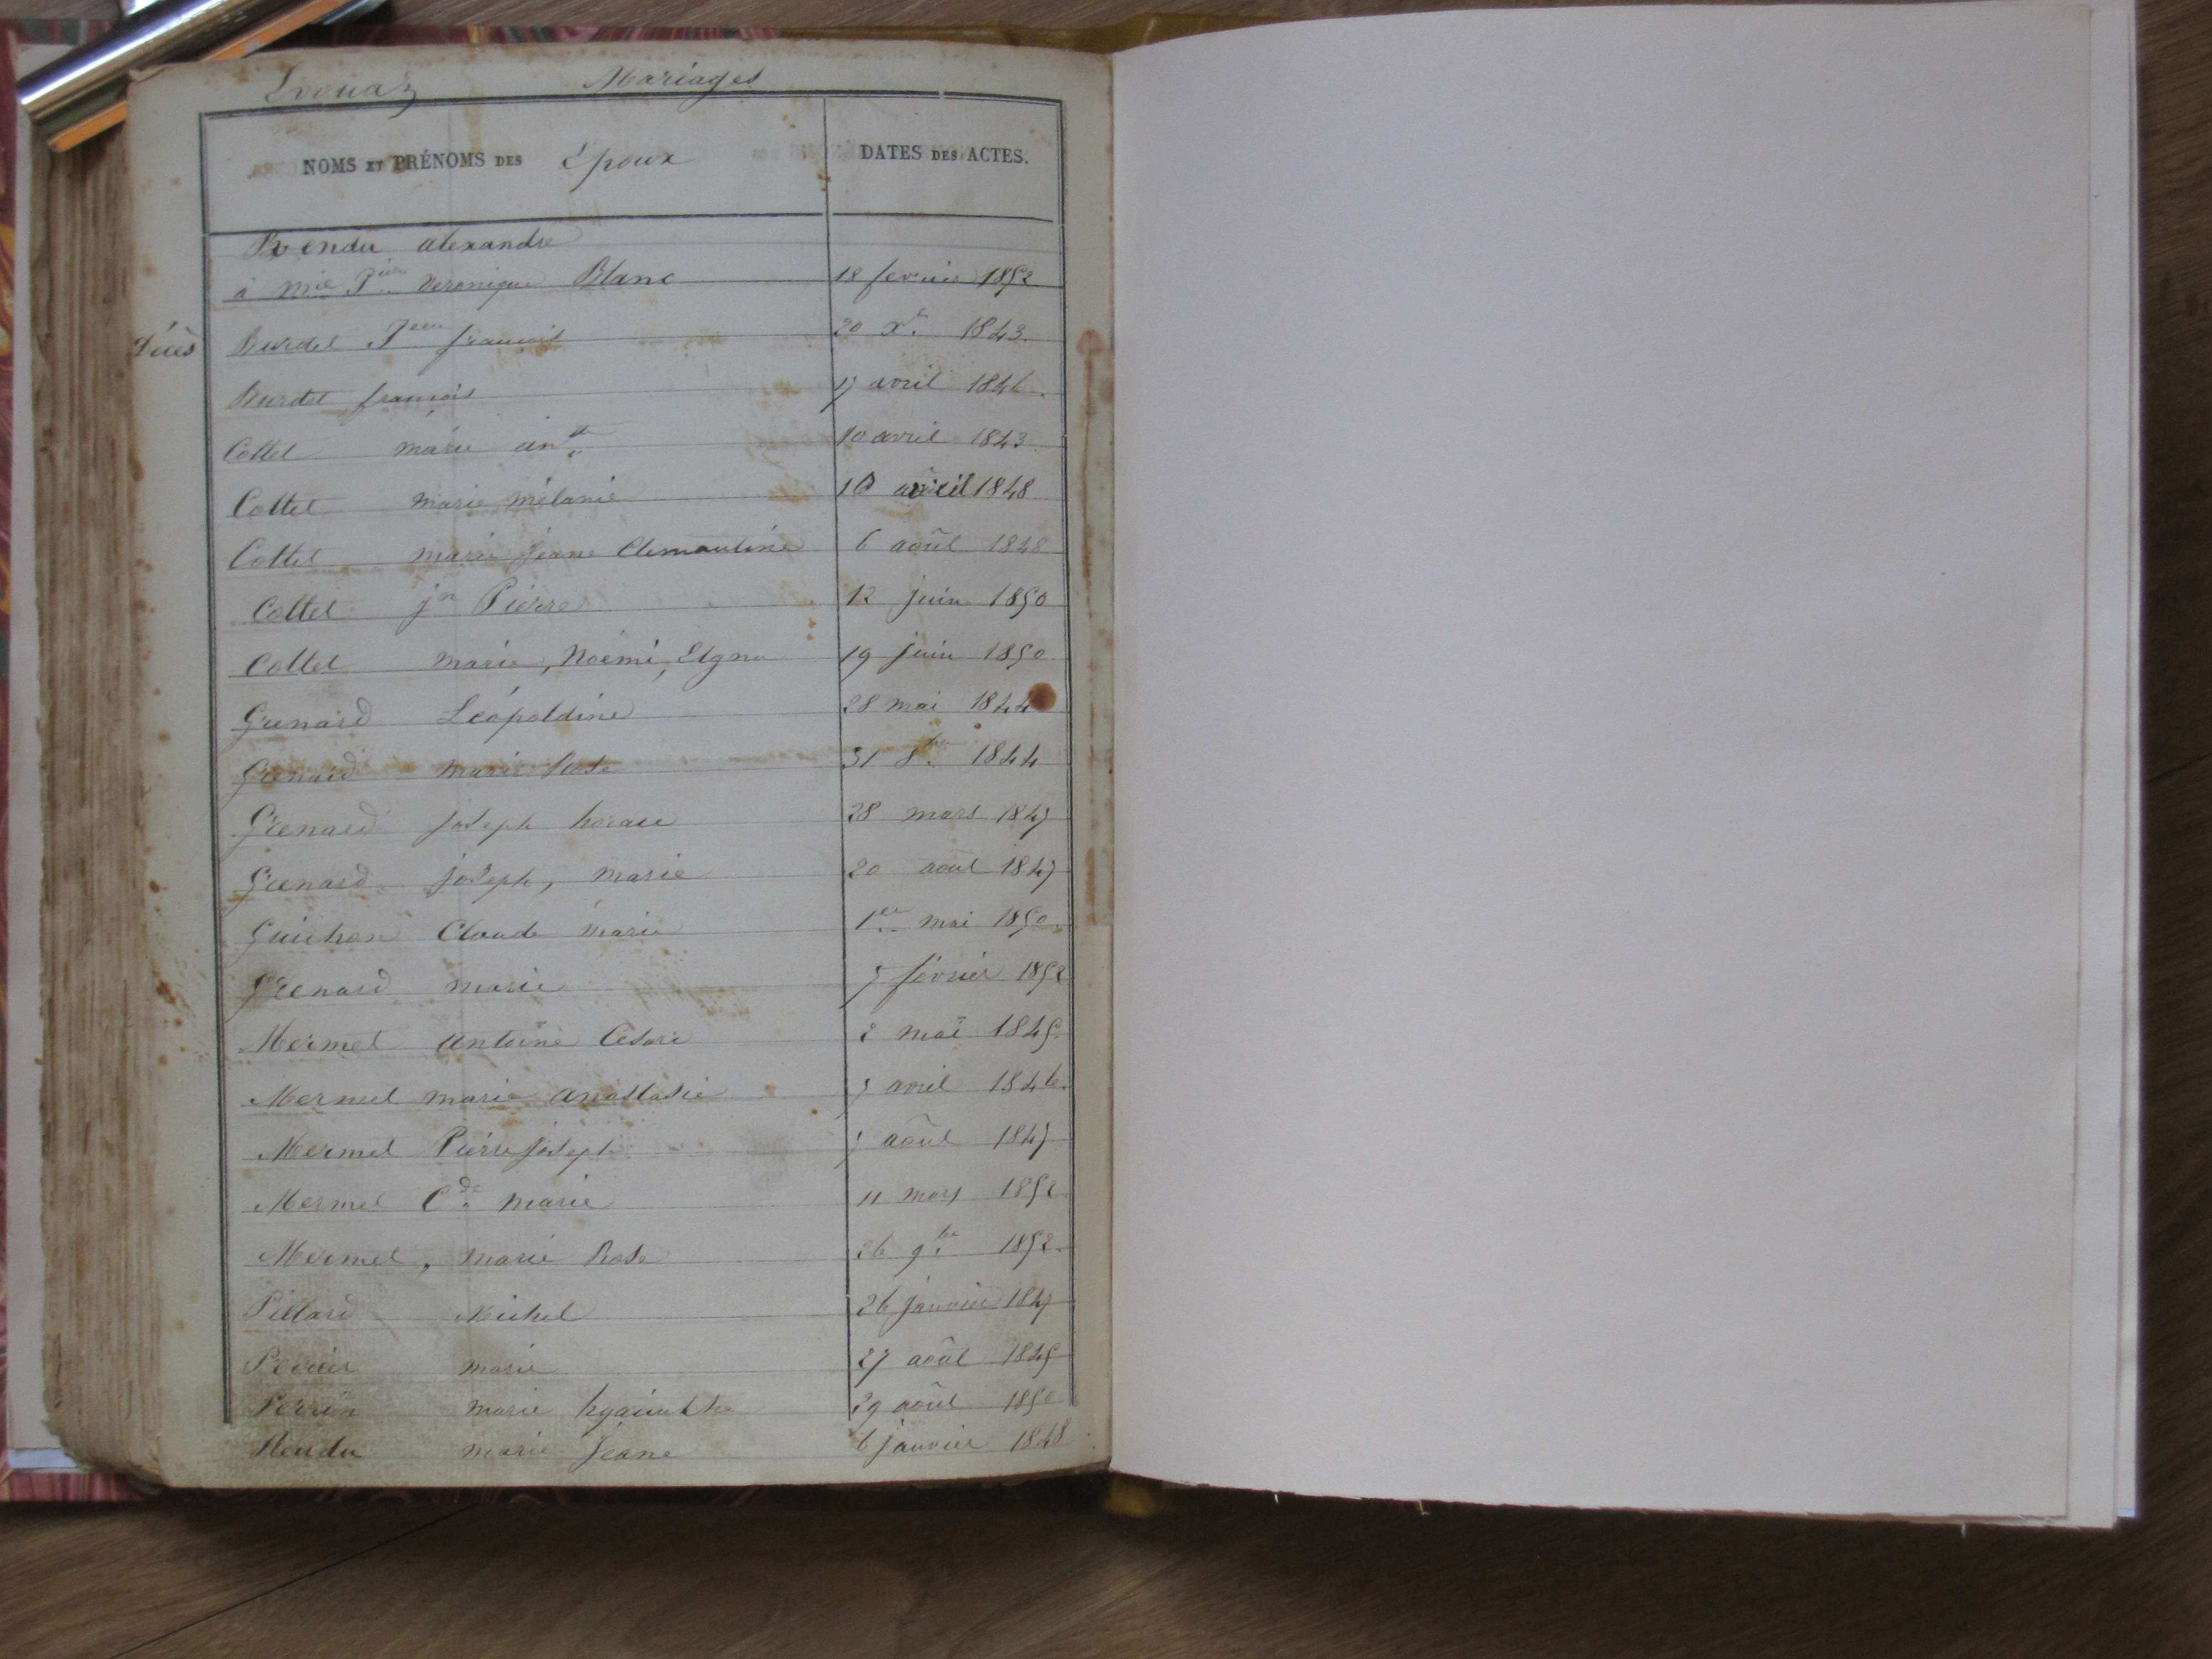 Mariages
NOMS ET PRÉNOMS DES Époux DATES DES ACTES.
Rendu alexandre
à Mie Veronique Blanc 18 fevrier 1852
Décès Burdet Jean françois 20 Xe. 1843.
Burdet françois 17 avril 1846.
Collet marie antte 10 avril 1843
Collet marie mélanie 10 avril 1848
Collet marie jeane Clemantine 6 août 1848
Collet jn Pierre 12 juin 1850
Collet marie, Noémi, 19 juin 1850
Grenard Léopoldine 28 mai 1844
Grenard marie Rose 31 8bre 1844
Grenard joseph horace 28 mars 1847
Grenard joseph, marie 20 août 1847
Guichon Claude marie 1er mai 1850.
Grenard marie 7 février 1852
Mermet antoine Cesari 2 mai 1845.
Mermet marie anastasie 7 avril 1846.
Mermet Pierre joseph 7 août 1847
Mermet Cde marie 11 mars 1852
Mermet, marie Rose 26 9bre 1852.
Pillard Michel 26 janvier 1847
marie 27 août 1845
Perrin marie hyacinthe 29 août 1850
Rendu marie jeane 6 janvier 1848